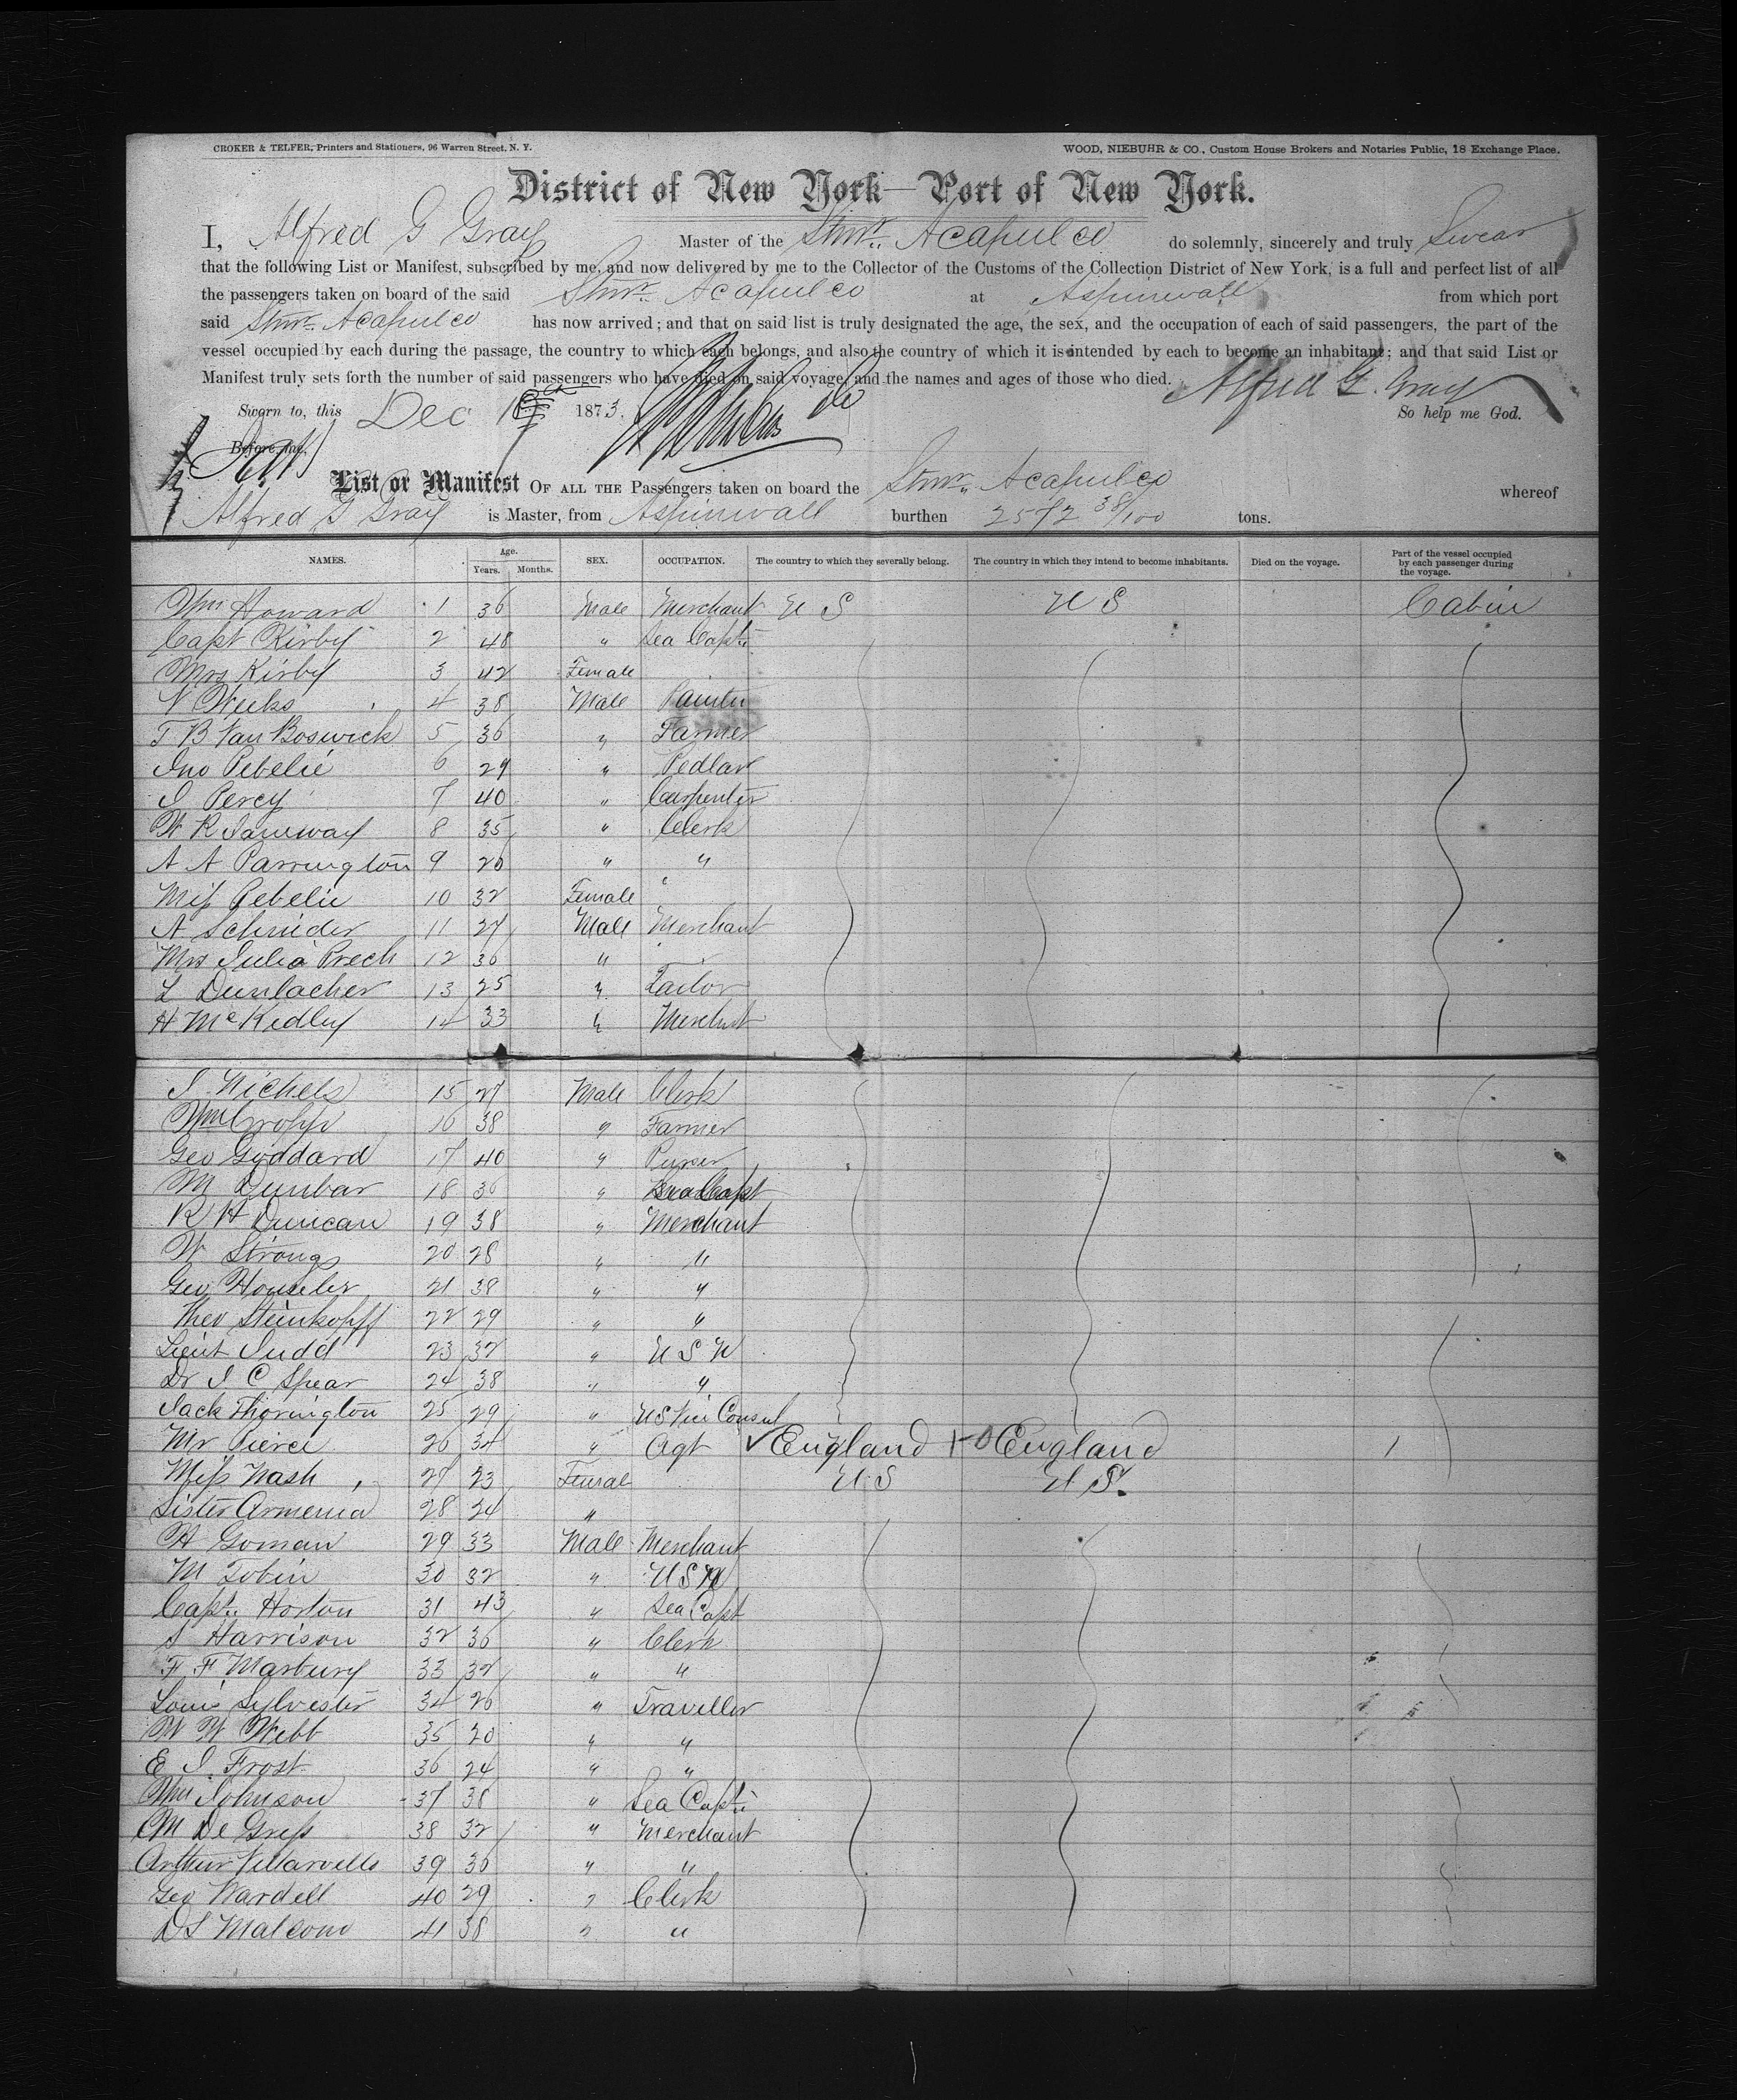 CROKER & TELFER, Printers and Stationers, 96 Warren Street, N. Y. WOOD, NIEBUHR & CO., Custom House Brokers and Notaries Public, 18 Exchange Place.
District of New York—Port of New York.
I, Alfred G Gray Master of the Stmr. Acapulco do solemnly, sincerely and truly Swear
that the following List or Manifest, subscribed by me, and now delivered by me to the Collector of the Customs of the Collection District of New York, is a full and perfect list of all
the passengers taken on board of the said Stmr. Acapulco at Aspinwall from which port
said Stmr. Acapulco has now arrived; and that on said list is truly designated the age, the sex, and the occupation of each of said passengers, the part of the
vessel occupied by each during the passage, the country to which each belongs, and also the country of which it is intended by each to become an inhabitant; and that said List or
Manifest truly sets forth the number of said passengers who have died on said voyage, and the names and ages of those who died. Alfred G. Gray
Sworn to, this Dec 1873. So help me God.
Before me,
List or Manifest OF ALL THE Passengers taken on board the Stmr. Acapulco whereof
Alfred G Gray is Master, from Aspinwall burthen 2572 38/100 tons.
NAMES. Age. Years. Months. SEX. OCCUPATION. The country to which they severally belong. The country in which they intend to become inhabitants. Died on the voyage. Part of the vessel occupied by each passenger during the voyage.
Wm Howard 1 36 Male Merchant U S U S Cabin
Capt Kirby 2 48 " Sea Capt.
Mrs Kirby 3 42 Female
N Weeks 4 38 Male Painter
T B Van Boswick 5 36 " Farmer
Jno Pebelie 6 29 " Pedlar
J Percy 7 40 " Carpenter
W R Janeway 8 35 " Clerk
A A Parrington 9 26 " "
Miss Pebelie 10 32 Female
A Schnider 11 27 Male Merchant
Mrs Julia Prech 12 36 "
L Dunlacher 13 25 " Tailor
H McKedley 14 33 " Merchnt
J. Nichels 15 27 Male Clerk
Wm 16 38 " Farmer
Geo Goddard 17 40 " Purser
M Dunbar 18 36 " Sea Capt
R H Duncan 19 38 " Merchant
W Strong 20 28 " "
Geo Houseler 21 38 " "
Theo Steinkopff 22 29 " "
Lieut Judd 23 32 " U S N
Dr J C Spear 24 38 " "
Jack Thorington 25 29 " US Vice Consul
Mr Pierce 26 34 " Agt England England 1
Miss Nash 27 23 Female U S U S.
Sister Armenia 28 24 "
H Goman 29 33 Male Merchant
M Tobin 30 32 " U S N
Capt. Horton 31 43 " Sea Capt
S Harrison 32 36 " Clerk
F F Marbury 33 32 " "
Louis Sylvester 34 26 " Traveller
W W Webb 35 20 " "
E J. Frost 36 24 " "
Wm Johnson 37 38 " Sea Capt.
M De Gress 38 32 " Merchant
Arthur 39 36 " "
Geo Wardell 40 29 " Clerk
D S Malcom 41 38 " "